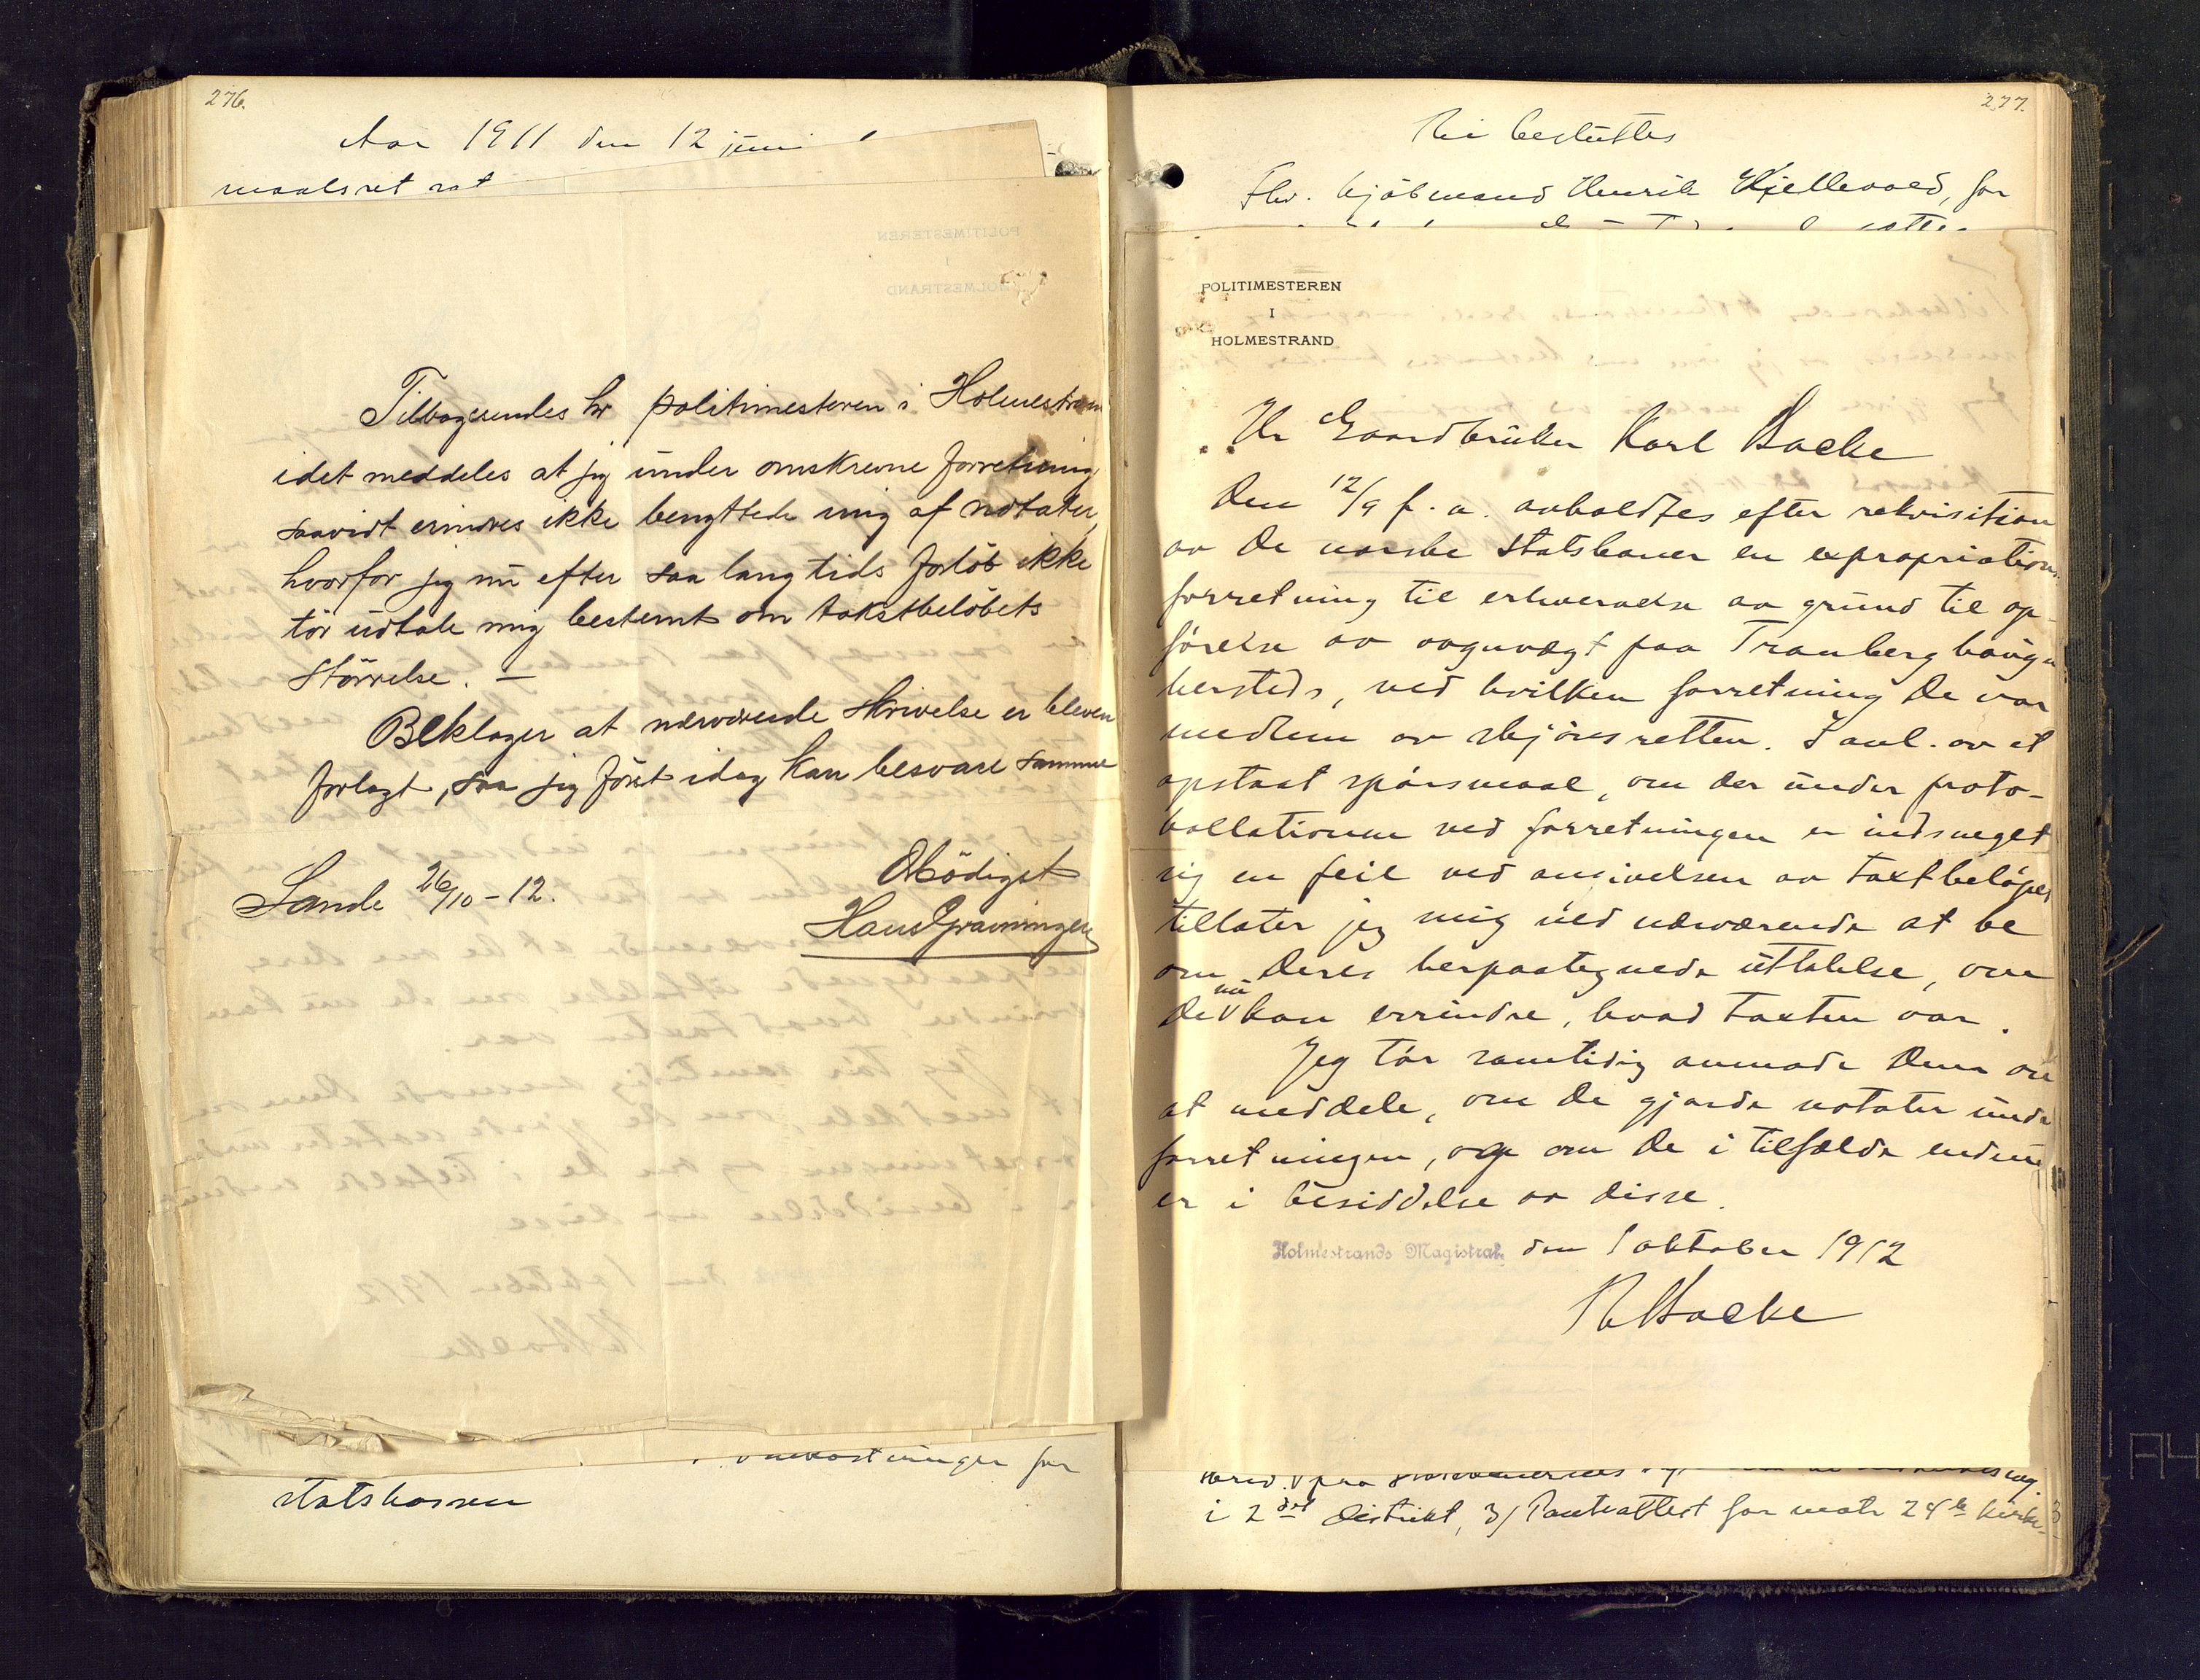 276.
Aar 1911 den 12 juni
maalsret sat
POLITIMESTEREN
I
HOLMESTRAND
Tilbagesendes hr politimesteren i Holmestrand
idet meddeles at jeg under omskrevne forretning
saavidt erindres ikke benyttede mig af notater,
hvorfor jeg nu efter saa lang tids forløb ikke
tør udtale mig bestemt om takstbeløbets
størrelse. —
Beklager at nærværende skrivelse er bleven
forlagt, saa jeg først idag kan besvare samme
Sande 26/10-12.
Ærbødigst
Hans Gravningen
omkostninger for
statskassen
277.
Ti besluttes
Flw. kjøbmand Henrik Kjellevold, for
POLITIMESTEREN
I
HOLMESTRAND
Hr Gaardbruker Karl Backe
Den 12/9 f. a. avholdtes efter rekvisition
av de norske Statsbaner en expropriations-
forretning til erhvervelse av grund til op-
førelse av vognvægt paa Tranberghaugen
hersteds, ved hvilken forretning De var
medlem av skjønsretten. I anl. av et
opstaat spørsmaal, om der under proto-
kollationen ved forretningen er indsneget
sig en feil ved angivelsen av taxtbeløpet
tillater jeg mig ved nærværende at be
om Deres herpaategnede uttalelse, om
De nu kan erindre, hvad taxten var.
Jeg tør samtidig anmode Dem om
at meddele, om De gjorde notater under
forretningen, og om De i tilfælde endnu
er i besiddelse av disse.
Holmestrands Magistrat den 1 oktober 1912
R Backe
i 2det distrikt, 3/ Panteattest for matr 24b Kirke-